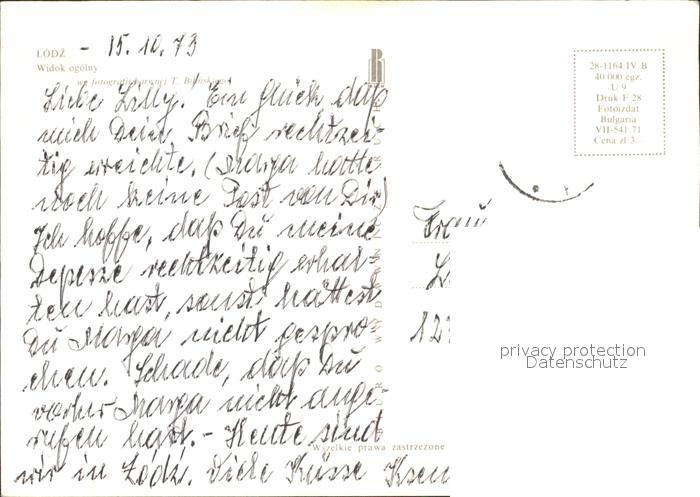 ŁÓDŹ - 15.10.73
Widok ogólny
wg fotografii barwnej T. Bilińskiego
Liebe Lilly! Ein Glück daß
mich Dein Brief rechtzei-
tig erreichte. (Marga hatte
noch keine Post von Dir)
Ich hoffe, daß Du meine
Depesze rechtzeitig erhal-
ten hast, sonst hättest
Du Marga nicht gespro-
chen. Schade, daß Du
vorher Marga nicht ange-
rufen hast. - Heute sind
wir in Łódź. Viele Küsse Ksen
Wszelkie prawa zastrzeżone
28-1164-IV-B
40 000 egz.
U 9
Druk F 28
Fotoizdat
Bulgaria
VII-541/71
Cena zł 3.-
Frau
privacy protection
Datenschutz